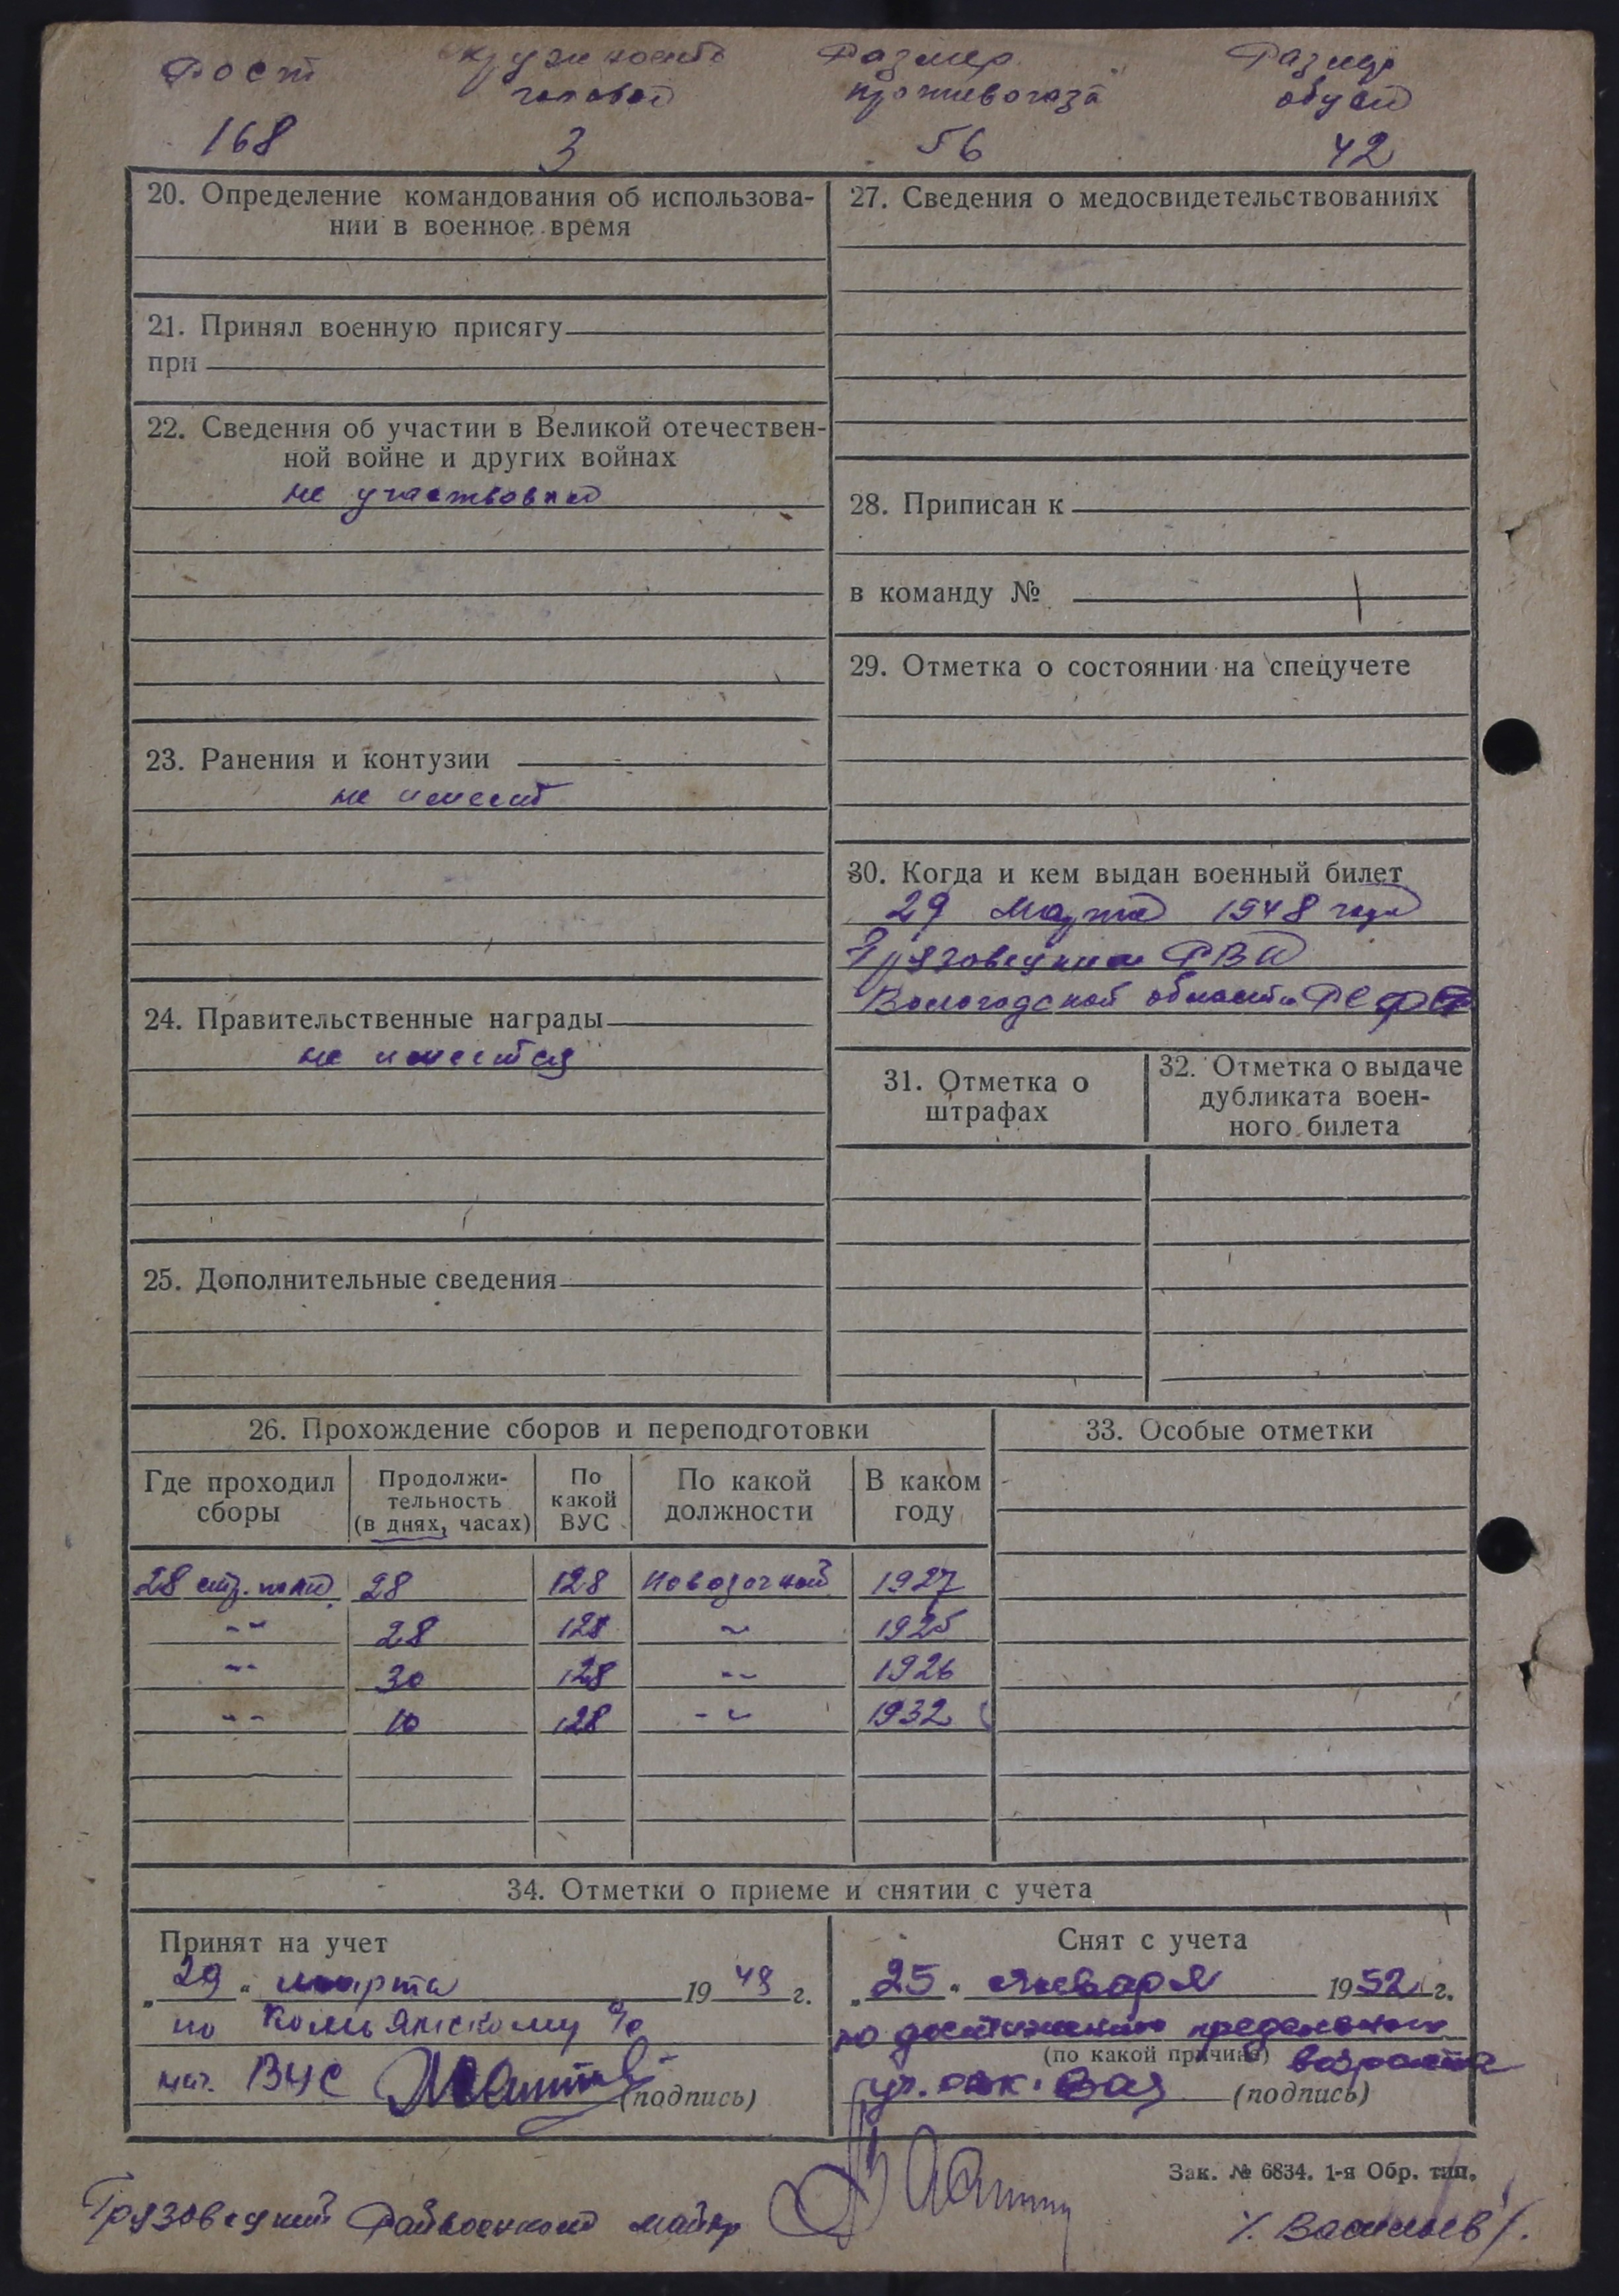 Рост
окружность
головы
Размер
противогаза
Размер
обуви
168
3
56
42
20. Определение командования об использова-
нии в военное время
21. Принял военную присягу
при
22. Сведения об участии в Великой отечествен-
ной войне и других войнах
не участвовал
23. Ранения и контузии
не имеет
24. Правительственные награды
не имеется
25. Дополнительные сведения
27. Сведения о медосвидетельствованиях
28. Приписан к
в команду №
29. Отметка о состоянии на спецучете
30. Когда и кем выдан военный билет
29 Марта 1948 года
Грязовецким РВК
Вологодской области РСФСР
31. Отметка о
штрафах
32. Отметка о выдаче
дубликата воен-
ного билета
26. Прохождение сборов и переподготовки
Где проходил
сборы
Продолжи-
тельность
(в днях, часах)
По
какой
ВУС
По какой
должности
В каком
году
28 стр. полк 28 128 Повозочный 1927
-"- 28 128 -"- 1925
-"- 30 128 -"- 1926
-"- 10 128 -"- 1932
33. Особые отметки
34. Отметки о приеме и снятии с учета
Принят на учет
„29“ марта 1948 г.
по Комьянскому с/с
нач. ВУС
(подпись)
Снят с учета
„25“ января 1952 г.
по достижению предельного
(по какой причине) возраста
(подпись)
Зак. № 6834. 1-я Обр. тип.
Грязовецкий Райвоенком майор
/Васильев/.